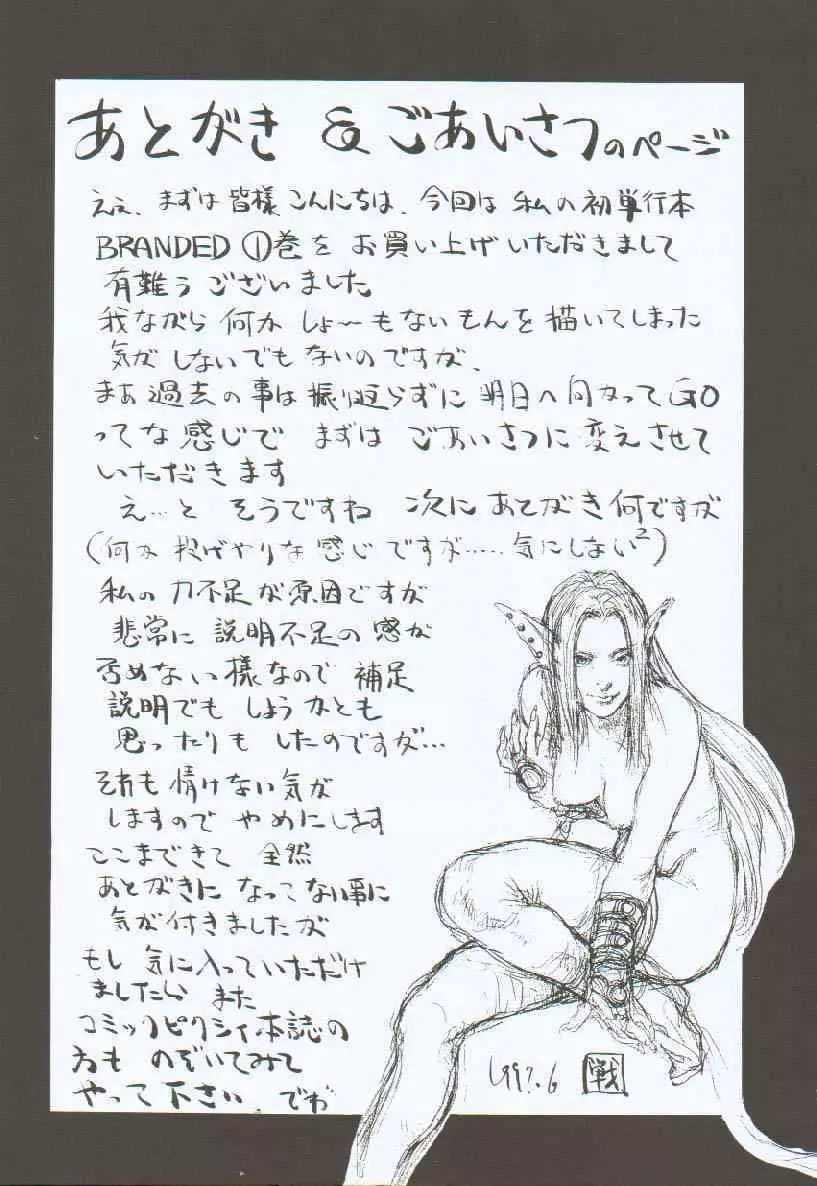 あとがき & ごあいさつのページ
ええ、まずは皆様こんにちは、今回は私の初単行本
BRANDED ①巻をお買い上げいただきまして
有難うございました
我ながら何かしょ～もないもんを描いてしまった
気がしないでもないのですが、
まあ過去の事は振り返らずに明日へ向かってGO
ってな感じでまずはごあいさつに変えさせて
いただきます
え…とそうですね 次にあとがき何ですが
(何か投げやりな感じですが……気にしない²)
私の力不足が原因ですが
非常に説明不足の感が
否めない様なので補足
説明でもしようかとも
思ったりもしたのですが…
それも情けない気が
しますのでやめにします
ここまできて全然
あとがきになってない事に
気が付きましたが
もし気に入っていただけ
ましたらまた
コミックピクシィ本誌の
方ものぞいてみて
やって下さい でわ
1997.6 戦